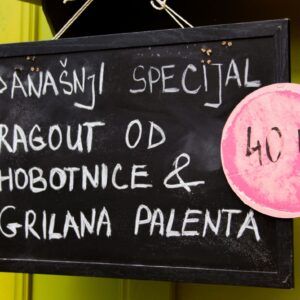 DANAŠNJI SPECIJAL
RAGOUT OD
HOBOTNICE &
GRILANA PALENTA
40